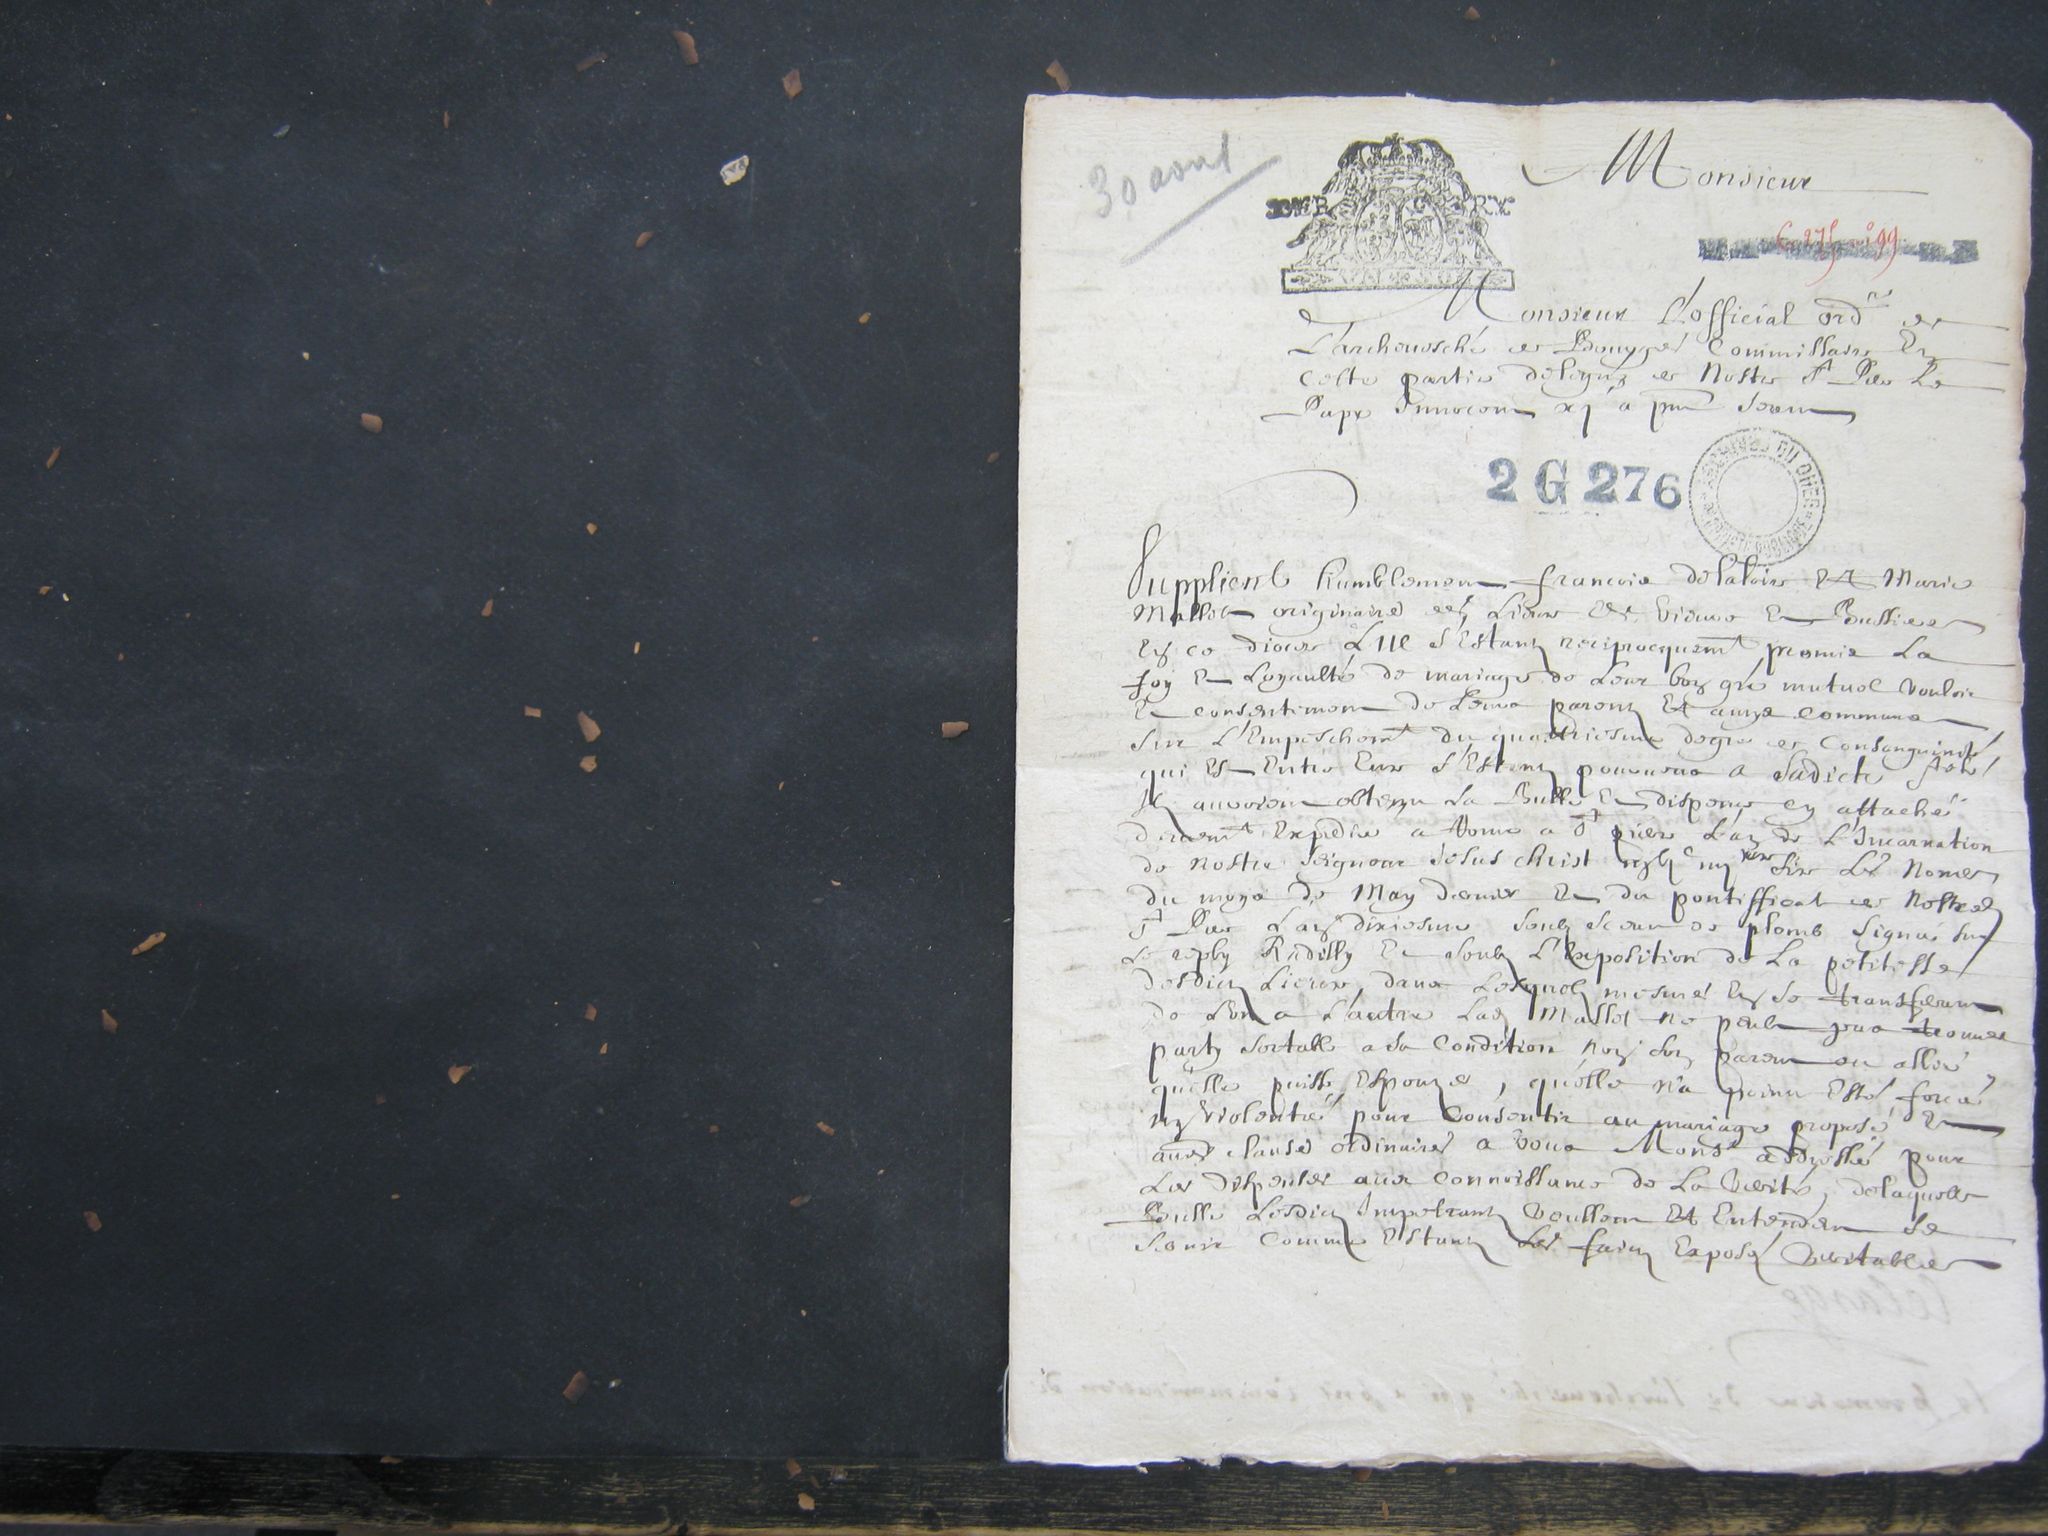 30 aout
Monsieur
BERRY
Monsieur L'official ord.re de
L'archeuesché de Bourges Commissaire En
Ceste partie delegué de Nostre St Pere Le
Pape Innocent xj a pnt seant
2 G 276
ARCHIVES DU CHER
Supplient humblement francois delaloire Et Marie
Mallet originaires des Lieux de et
En ce diocese s'Estant reciproquemt promis La
foy Et Loyaulté de mariage de Leur bon gré mutuel vouloir
Et consentement de Leurs parents Et amys communs
sur L'Empeschemt du quatriesme degré de Consanguinité
qui Est Entre Eux s'Estant pourueus a sadicte Steté
Ils auroient obtenu La Bulle de dispence cy attachée
deuemt Expediée a Rome a St pierre L'an de L'Incarnation
de Nostre Seigneur Jesus Christ Les Nones
du moys de May dernier Et du pontifficat de Nostred
St Pere L'an dixiesme soubs sceau de plomb signée sur
Le reply Et soubs L'Exposition de La petitesse
desdicts Lieux, dans Lesquels mesmes En se transferant
de L'un a L'autre Lad Mallet ne peult pas trouuer
party sortable a sa Condition non son parent ou allié
qu'elle puisse Espouzer, qu'elle n'a point Esté forcée
ny violentée pour Consentir au mariage proposé, Et
aues clauses ordinaires a vous Monsr adressée pour
Les dispenser auec connoissance de La verité, delaquelle
Bulle Lesdicts Impetrants veullent Et Entendent se
seruir Comme Estants Les faicts Exposés veritables